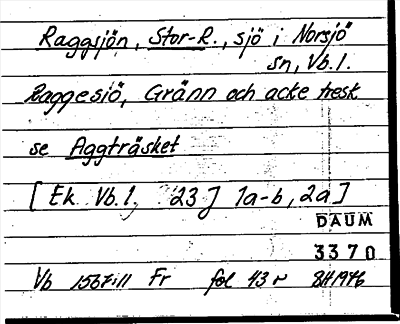 Raggsjön, Stor-R., sjö i Norsjö
sn, Vb.l.
Raggesiö, Gränn och acke tresk
se Aggträsket
[Ek Vb.l, 23] 1a-b, 2a]
DAUM
3370
Vb 1567:11 Fr fol 43 r BH 1946